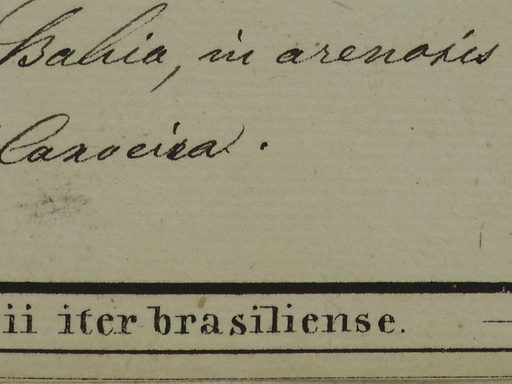 Bahia, in arenosis
Caxoeira.
ii iter brasiliense.